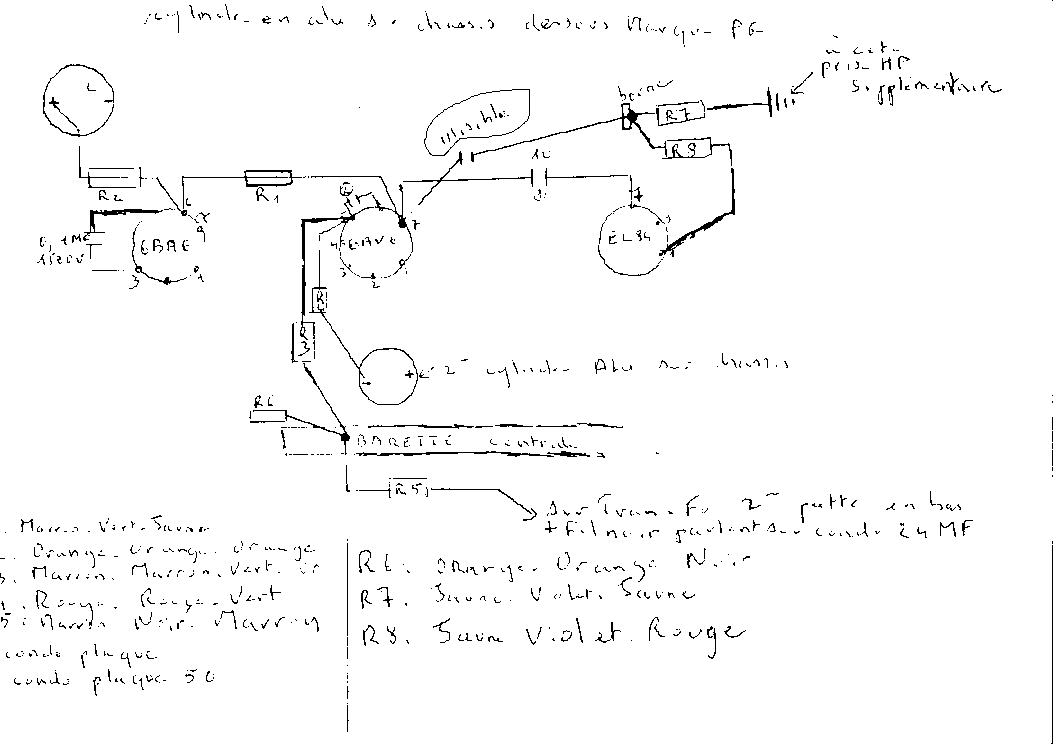 en alu chassis dessous Marque PE
à cette
prise HP
Supplémentaire
borne
R7
R8
invisible
R2
R1
7
7
9
EBAE
0,1MF
1500V
3
1
4
3
2
EL84
R
R
3
+ - 2 cylindre Alu sur chassis
R6
BARETTE centrale
R5
sur Transfo 2 patte en bas
+ Fil noir partant sur condo 24 MF
Marron. Vert. Jaune
Orange. Orange. Orange
3. Marron. Marron. Vert.
4. Rouge. Rouge. Vert
5: Marron Noir. Marron
condo plaque
condo plaque 50
R6. Orange. Orange Noir
R7. Jaune. Violet. Jaune
R8. Jaune Violet. Rouge